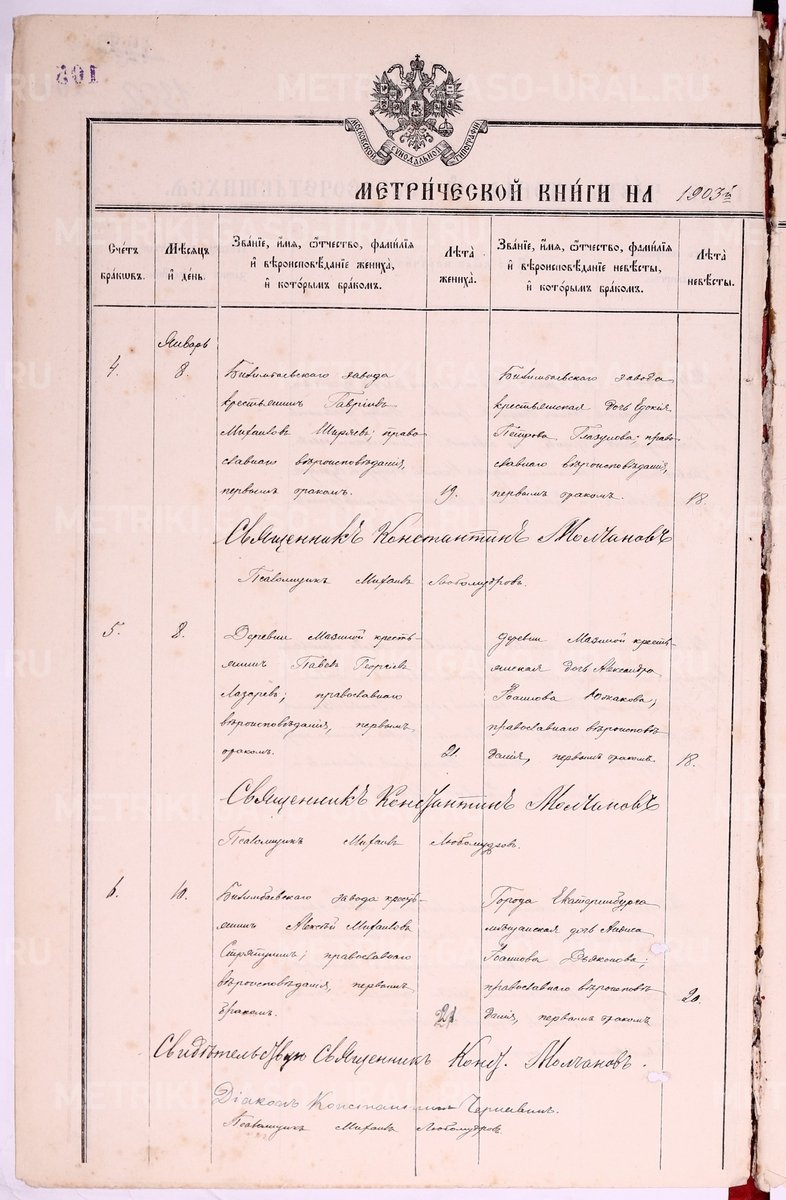 108
МОСКОВСКОЙ СѴНОДАЛЬНОЙ ТИПОГРАФІИ
МЕТРИ́ЧЕСКОЙ КНИ́ГИ НА 1903й
Сче́тъ бра́кѡвъ.
Мѣ́сяцъ и҆ де́нь.
Зва́нїе, и҆́мя, ѻ҆́тчество, фами́лїя
и҆ вѣроисповѣ́данїе жениха̀,
и҆ кото́рымъ бра́комъ.
Лѣ́та жениха̀.
Зва́нїе, и҆́мя, ѻ҆́тчество, фами́лїя
и҆ вѣроисповѣ́данїе невѣ́сты,
и҆ кото́рымъ бра́комъ.
Лѣ́та невѣ́сты.
Январь
4.
8.
Билимбаевскаго завода
крестьянинъ Гавріилъ
Михаиловъ Ширяевъ; право-
славнаго вѣроисповѣданія,
первымъ бракомъ.
19.
Билимбаевскаго завода
крестьянская дочь Евдокія
Петрова Глазунова; право-
славнаго вѣроисповѣданія,
первымъ бракомъ.
18.
Священникъ Константинъ Молчановъ
Псаломщикъ Михаилъ Любомудровъ.
5.
8.
Деревни Мазиной кресть-
янинъ Павелъ Георгіевъ
Лазаревъ; православнаго
вѣроисповѣданія, первымъ
бракомъ.
21.
деревни Мазиной кресть-
янская дочь Александра
Іоаннова
православнаго вѣроисповѣ-
данія, первымъ бракомъ.
18.
Священникъ Константинъ Молчановъ
Псаломщикъ Михаилъ Любомудровъ.
6.
10.
Билимбаевскаго завода кресть-
янинъ Алексѣй Михаиловъ
православнаго
вѣроисповѣданія, первымъ
бракомъ.
21
Города Екатеринбурга
мѣщанская дочь Анфиса
Іоаннова Дьяконова;
православнаго вѣроисповѣ-
данія, первымъ бракомъ
20.
Свидѣтельствую Священникъ Конст. Молчановъ.
Діаконъ Константинъ
Псаломщикъ Михаилъ Любомудровъ.
METRIKI.GASO-URAL.RU